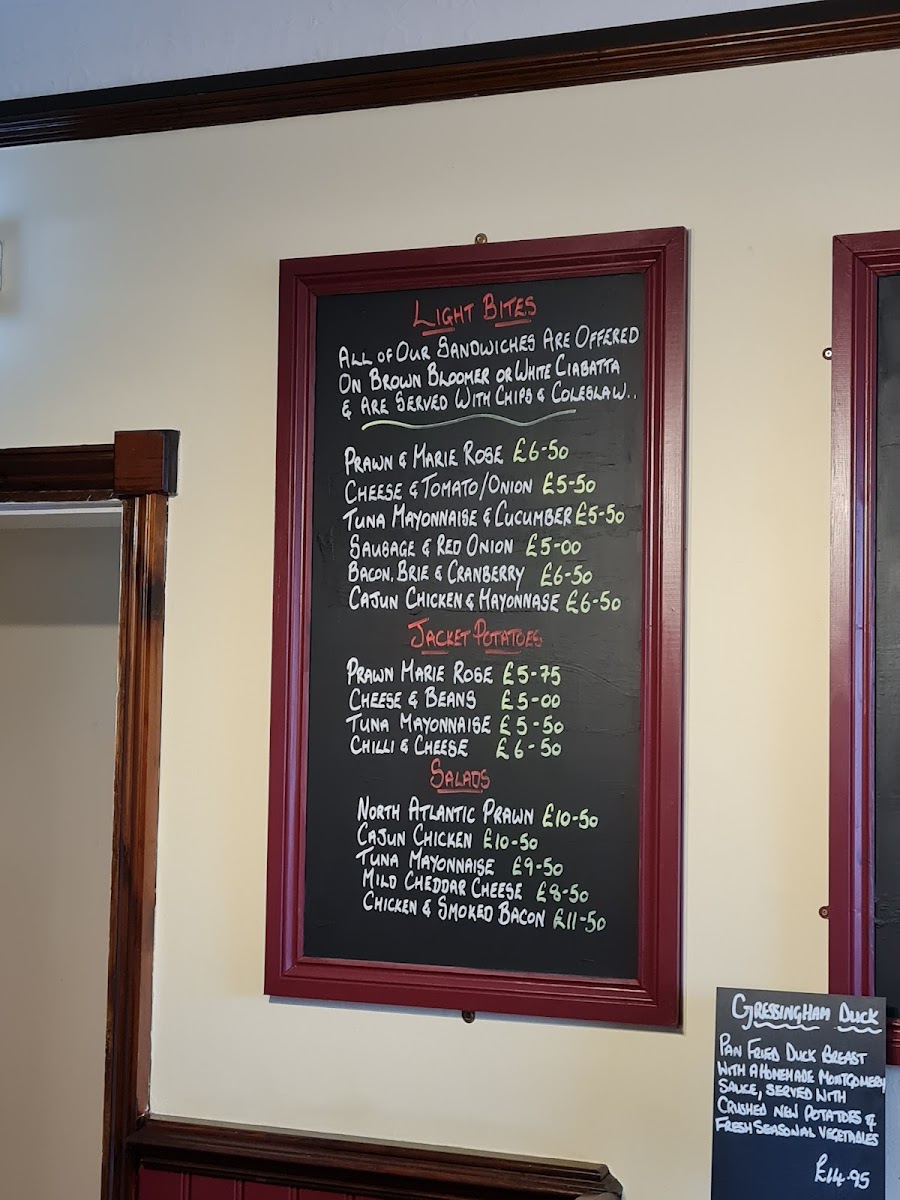 LIGHT BITES
ALL OF OUR SANDWICHES ARE OFFERED
ON BROWN BLOOMER OR WHITE CIABATTA
& ARE SERVED WITH CHIPS & COLESLAW..
PRAWN & MARIE ROSE £6-50
CHEESE & TOMATO/ONION £5-50
TUNA MAYONNAISE & CUCUMBER £5-50
SAUSAGE & RED ONION £5-00
BACON, BRIE & CRANBERRY £6-50
CAJUN CHICKEN & MAYONNASE £6-50
JACKET POTATOES
PRAWN MARIE ROSE £5-75
CHEESE & BEANS £5-00
TUNA MAYONNAISE £5-50
CHILLI & CHEESE £6-50
SALADS
NORTH ATLANTIC PRAWN £10-50
CAJUN CHICKEN £10-50
TUNA MAYONNAISE £9-50
MILD CHEDDAR CHEESE £8-50
CHICKEN & SMOKED BACON £11-50
GRESSINGHAM DUCK
PAN FRIED DUCK BREAST
WITH A HOMEMADE MONTGOMERY
SAUCE, SERVED WITH
CRUSHED NEW POTATOES &
FRESH SEASONAL VEGETABLES
£14.95